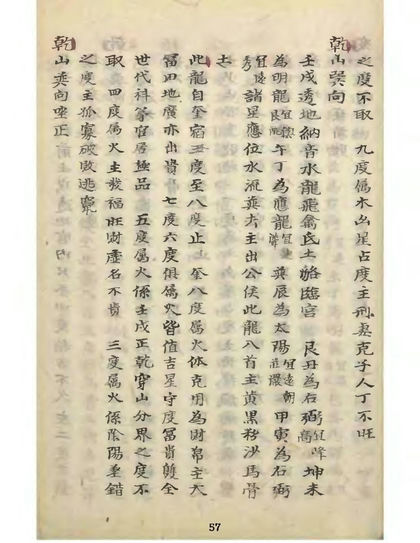 之度不取　九度属木幺星占度主刑妻克子人丁不旺
乾山巽向
壬戌透地納音水龍飛禽氐土貉臨宮　艮丑為石弼宜峰高坤未
為明龍宜艮午丁為應龍宜巽辰為太陽宜遠朝甲寅為石弼
宜遠秀諸星應位水流巽去主出公侯此龍八首主黄黒粉沙馬骨
土
此龍自奎宿三度至八度止　奎八度属火体克用為財帛主大
富田地廣亦出貴　七度六度俱属火皆值吉星守度富貴雙全
世代科第官居極品　五度属火係壬戌正乾穿山分界之度不
取　四度属火主我福旺財虛名不貴　三度属火係陰陽差錯
之度主孤寡破敗逃竄
乾山巽向空正
57